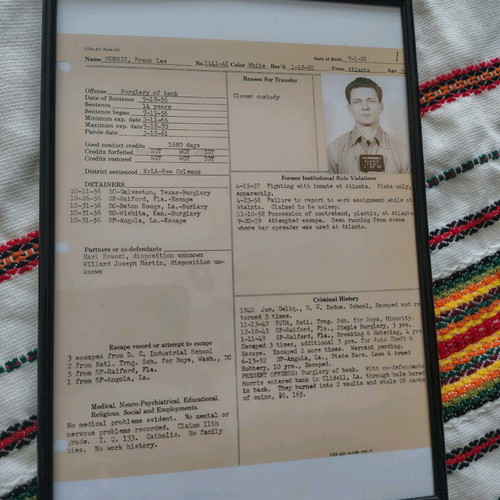 Name MORRIS, Frank Lee No. 1441-AZ Color White Rec'd 1-18-60
Date of Birth 9-1-26
From Atlanta Age
Offense Burglary of bank
Date of Sentence 9-19-56
Sentence 14 years
Sentence began 9-19-56
Minimum exp. date 2-11-66
Maximum exp. date 9-18-70
Parole date 5-18-61
Good conduct credits 1680 days
Credits forfeited SGT WGT IGT
Credits restored SGT WGT IGT
District sentenced E:LA-New Orleans
DETAINERS
10-11-56 SO-Galveston, Texas-Burglary
10-26-56 SP-Raiford, Fla.-Escape
10-31-56 SO-Baton Rouge, La.-Burlary
10-31-56 SO-Wichita, Kan.-Burglary
10-31-56 SP-Angola, La.-Escape
Partners or co-defendants
Earl Branci, disposition unknown
Willard Joseph Martin, disposition un-
known
Escape record or attempt to escape
3 escapes from D. C. Industrial School
2 from Natl. Trng. Sch. for Boys, Wash, DC
5 from SP-Raiford, Fla.
1 from SP-Angola, La.
Medical, Neuro-Psychiatrical, Educational
Religious, Social and Employments
No medical problems evident. No mental or
nervous problems recorded. Claims 11th
grade. I. Q. 133. Catholic. No family
ties. No work history.
Reason For Transfer
Closer custody
Former Institutional Rule Violations
4-15-57 Fighting with inmate at Atlanta. Fists only,
apparently.
4-23-58 Failure to report to work assignment while at
Atalnta. Claimed to be asleep.
11-10-58 Possession of contraband, plastic, at Atlanta
9-20-59 Attempted escape. Seen running from scene
where bar spreader was used at Atlanta.
Criminal History
1940 Juv. Deliq., D. C. Indus. School, Escaped and re
turned 3 times.
11-13-40 FJDA, Natl. Trng. Sch. for Boys, Minority.
12-18-45 SP-Raiford, Fla., Simple Burglary, 3 yrs.
1-11-49 SP-Raiford, Fla., Breaking & Entering, 4 yrs
Escaped 3 times, additional 3 yrs. for Auto Theft &
Escape. Escaped 2 more times. Warrant pending.
6-13-52 SP-Angola, La., State Narc. Laws & Armed
Robbery, 10 yrs., Escaped.
PRESENT OFFENSE: Burglary of Bank. With co-defendants
Morris entered bank in Slidell, La. through hole bored
in back. They burned into 2 vaults and stole 26 sacks
of coins, $6,165.